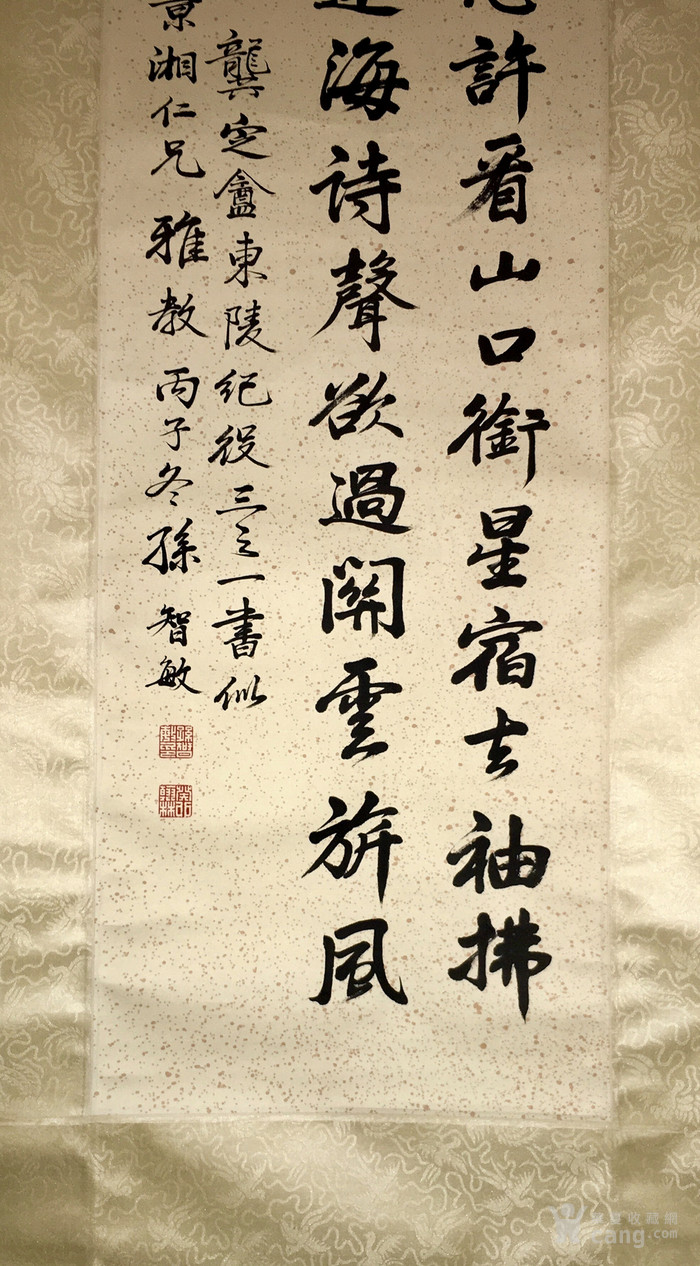 許看山口銜星宿去袖拂
海詩聲欲過關雲旂風
龔定盦東陵紀役三之一書似
湘仁兄雅教丙子冬孫智敏
孫智敏印
癸卯翰林
收藏網
cang.com